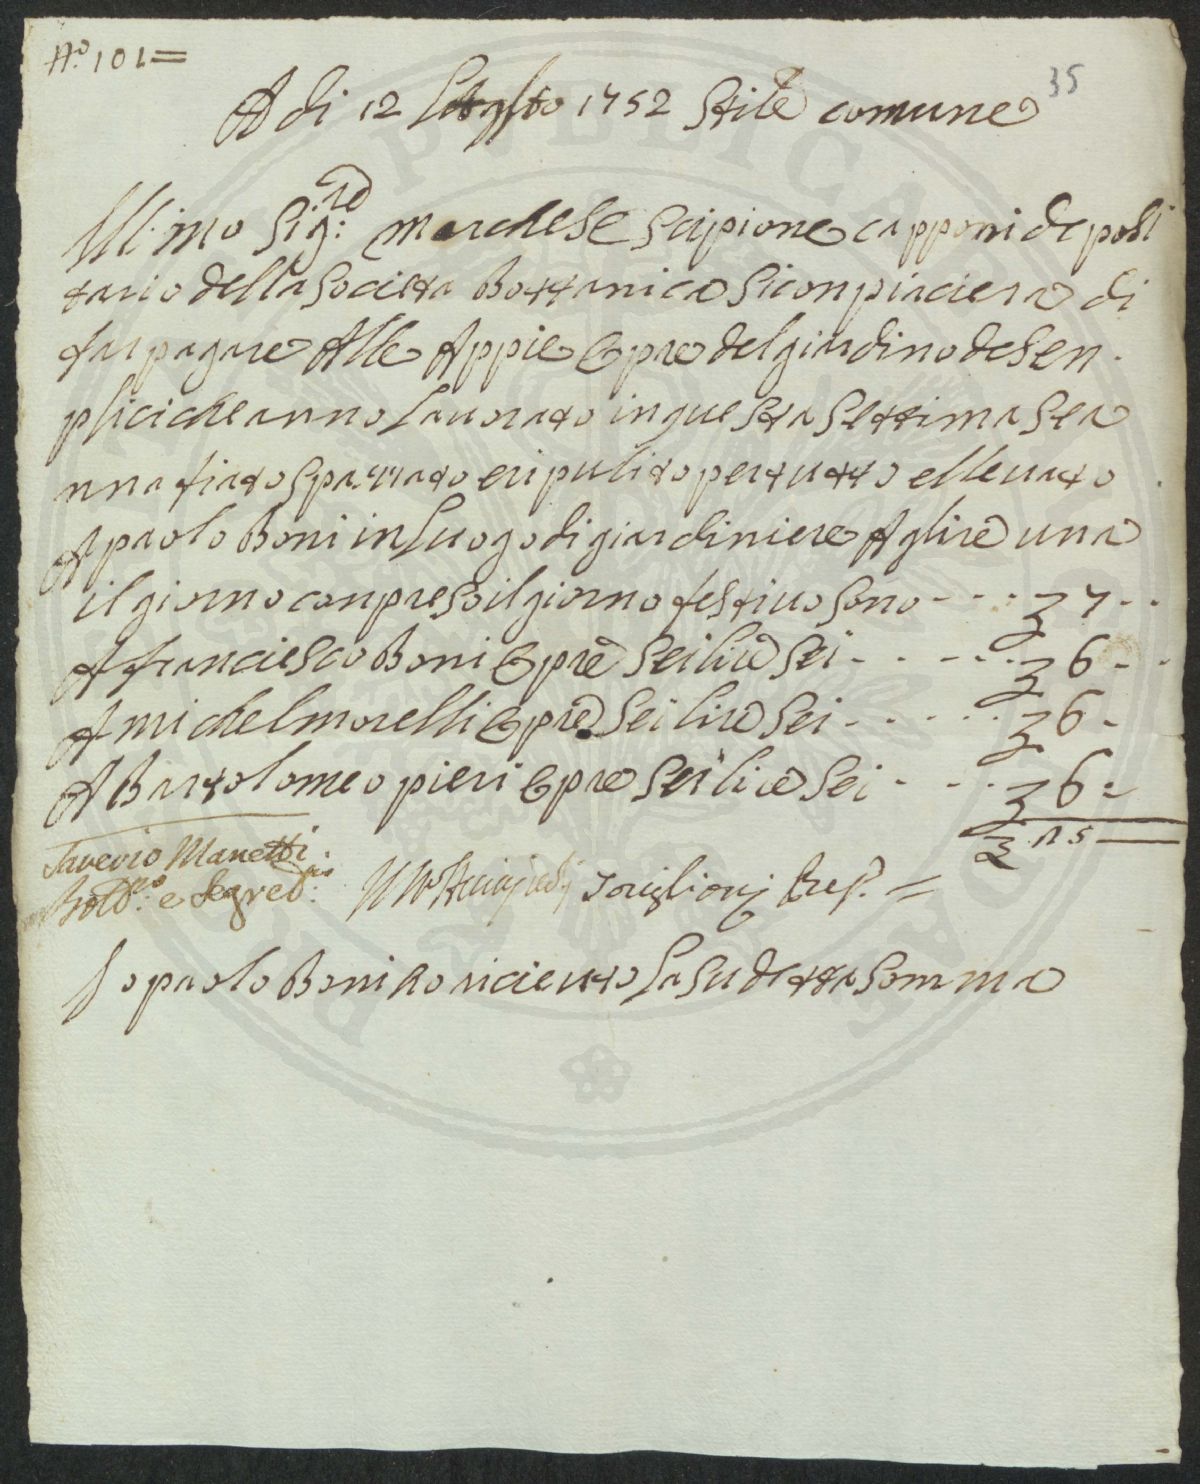 N.º 101=
35
A di 12 1752 Stile comune
Ill.mo Sig.re Marchese Scipione capponi deposi
tario della Societa Bottanica Si conpiaciera di
far pagare Alle Appie Opre del giardino de Sen
plici che anno Lavorato in questa Settima Sta
nnafiato Spazzato e ripulito per tutto e llevato
A paolo Boni in Luogo di giardiniere A lire una
il giorno conpreso il giorno festivo sono - - - 7 - -
A franciesco Boni Opre Sei lire Sei - - - - - 6 - -
A michel morelli Opre Sei lire Sei - - - - - 6 -
A Bartolomeo pieri Opre Sei lire Sei - - - - 6 -
25
Saverio Manetti
Bott.co e Segret.rio
Pres.e =
Io paolo Boni ho riceuto La Sudetta Somma
PVBLICA